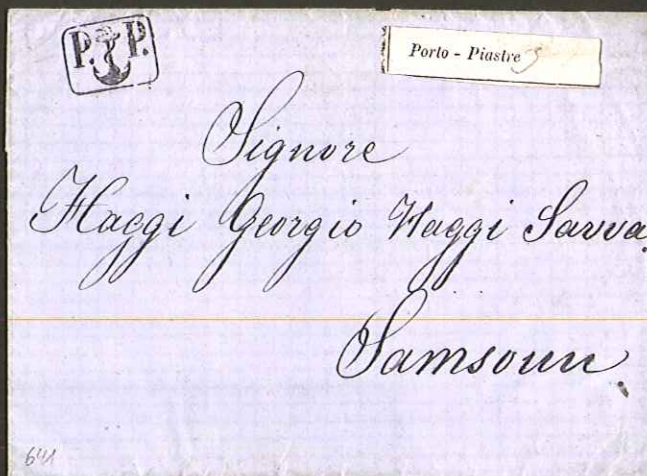 P. P.
Porto - Piastre 5
Signore
Haggi Georgio Haggi Savva
Samsoun.
641